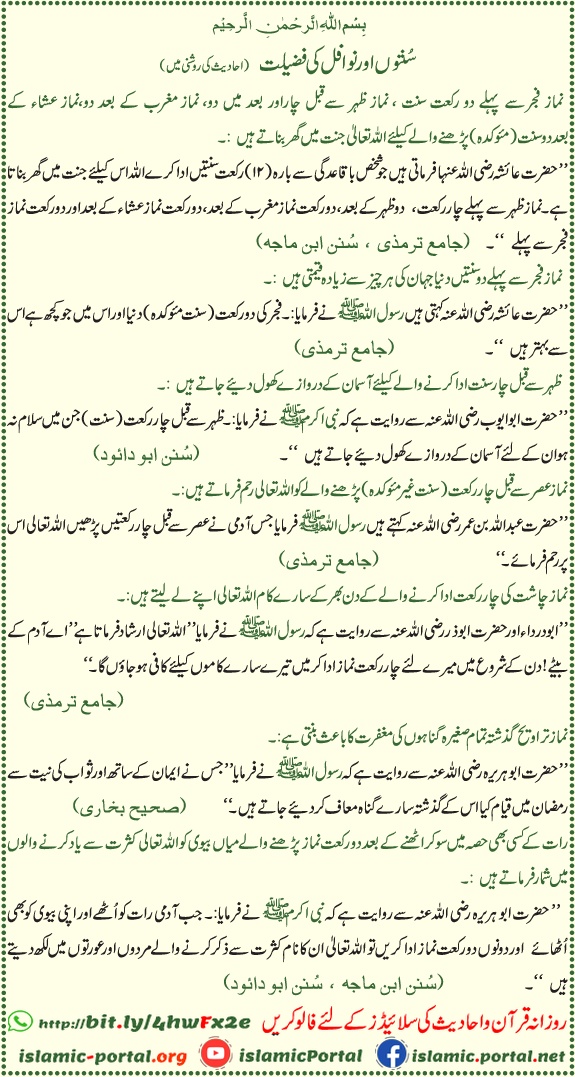 بِسْمِ اللهِ الرَّحْمٰنِ الرَّحِيْمِ
سُنتوں اور نوافل کی فضیلت (احادیث کی روشنی میں)
نماز فجر سے پہلے دو رکعت سنت ، نماز ظہر سے قبل چار اور بعد میں دو، نماز مغرب کے بعد دو، نماز عشاء کے
بعد دو سنت (مئوکدہ) پڑھنے والے کیلئے اللہ تعالیٰ جنت میں گھر بناتے ہیں :۔
’’حضرت عائشہ رضی اللہ عنہا فرماتی ہیں جو شخص باقاعدگی سے بارہ (۱۲) رکعت سنتیں ادا کرے اللہ اس کیلئے جنت میں گھر بناتا
ہے۔ نماز ظہر سے پہلے چار رکعت، دو ظہر کے بعد، دو رکعت نماز مغرب کے بعد، دو رکعت نماز عشاء کے بعد اور دو رکعت نماز
فجر سے پہلے ‘‘۔ (جامع ترمذی ، سُنن ابن ماجه)
نماز فجر سے پہلے دو سنتیں دنیا جہان کی ہر چیز سے زیادہ قیمتی ہیں :۔
’’حضرت عائشہ رضی اللہ عنہ کہتی ہیں رسول اللہ ﷺ نے فرمایا:۔ فجر کی دو رکعت (سنت مئوکدہ) دنیا اور اس میں جو کچھ ہے اس
سے بہتر ہیں ‘‘۔ (جامع ترمذی)
ظہر سے قبل چار سنت ادا کرنے والے کیلئے آسمان کے دروازے کھول دیئے جاتے ہیں :۔
’’حضرت ابو ایوب رضی اللہ عنہ سے روایت ہے کہ نبی اکرم ﷺ نے فرمایا:۔ ظہر سے قبل چار رکعت (سنت) جن میں سلام نہ
ہو ان کے لئے آسمان کے دروازے کھول دیئے جاتے ہیں ‘‘۔ (سُنن ابو دائود)
نماز عصر سے قبل چار رکعت (سنت غیر مئوکدہ) پڑھنے والے کو اللہ تعالی رحم فرماتے ہیں:۔
’’حضرت عبداللہ بن عمر رضی اللہ عنہ کہتے ہیں رسول اللہ ﷺ فرمایا جس آدمی نے عصر سے قبل چار رکعتیں پڑھیں اللہ تعالی اس
پر رحم فرمائے۔‘‘ (جامع ترمذی)
نماز چاشت کی چار رکعت ادا کرنے والے کے دن بھر کے سارے کام اللہ تعالی اپنے لے لیتے ہیں:۔
’’ابودرداء اور حضرت ابوذر رضی اللہ عنہ سے روایت ہے کہ رسول اللہ ﷺ نے فرمایا’’اللہ تعالی ارشاد فرماتا ہے’’اے آدم کے
بیٹے! دن کے شروع میں میرے لئے چار رکعت نماز ادا کر میں تیرے سارے کاموں کیلئے کافی ہو جاؤں گا۔‘‘
(جامع ترمذی)
نماز تراویح گذشتہ تمام صغیرہ گناہوں کی مغفرت کا باعث بنتی ہے:۔
’’حضرت ابو ہریرہ رضی اللہ عنہ سے روایت ہے کہ رسول اللہ ﷺ نے فرمایا’’جس نے ایمان کے ساتھ اور ثواب کی نیت سے
رمضان میں قیام کیا اس کے گذشتہ سارے گناہ معاف کر دیئے جاتے ہیں۔‘‘ (صحیح بخاری)
رات کے کسی بھی حصہ میں سو کر اٹھنے کے بعد دو رکعت نماز پڑھنے والے میاں بیوی کو اللہ تعالی کثرت سے یاد کرنے والوں
میں شمار فرماتے ہیں :۔
’’حضرت ابو ہریرہ رضی اللہ عنہ سے روایت ہے کہ نبی اکرم ﷺ نے فرمایا:۔ جب آدمی رات کو اُٹھے اور اپنی بیوی کو بھی
اُٹھائے اور دونوں دو رکعت نماز ادا کریں تو اللہ تعالیٰ ان کا نام کثرت سے ذکر کرنے والے مردوں اور عورتوں میں لکھ دیتے
ہیں ‘‘۔ (سُنن ابن ماجه ، سُنن ابو دائود)
روزانہ قرآن و احادیث کی سلائیڈز کے لئے فالو کریں http://bit.ly/4hwFx2e
islamic-portal.org islamicPortal islamic.portal.net